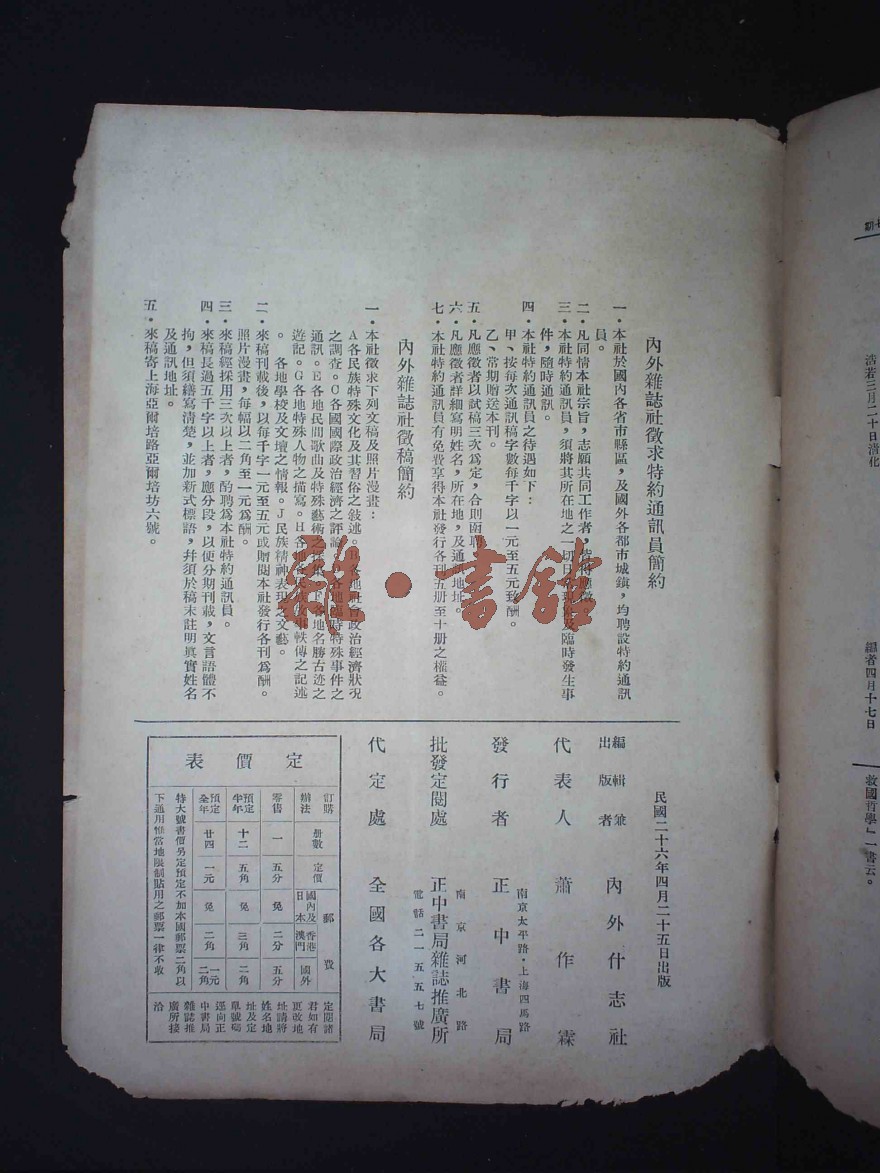 內外雜誌社徵求特約通訊員簡約
一．本社於國內各省市縣區，及國外各都市城鎮，均聘設特約通訊
員。
二．凡同情本社宗旨，志願共同工作者，皆得應徵。
三．本社特約通訊員，須將其所在地之一切日常現象及臨時發生事
件，隨時通訊。
四．本社特約通訊員之待遇如下：
甲、按每次通訊稿字數每千字以一元至五元致酬。
乙、常期贈送本刊。
五．凡應徵者以試稿三次為定，合則函聘
六．凡應徵者詳細寫明姓名，所在地，及通訊地址。
七．本社特約通訊員有免費享得本社發行各刊五册至十册之權益。
內外雜誌社徵稿簡約
一．本社徵求下列文稿及照片漫畫：
A各民族特殊文化及其習俗之敍述。B各地社會政治經濟狀況
之調查。C各國國際政治經濟之評論 各地臨時特殊事件之
通訊。E各地民間歌曲及特殊藝術之 F各地名勝古迹之
遊記。G各地特殊人物之描寫。H各地 事軼傳之記述
。 各地學校及文壇之情報。J民族精神表現之文藝。
二．來稿刊載後，以每千字一元至五元或贈閱本社發行各刊爲酬。
照片漫畫，每幅以二角至一元爲酬。
三．來稿經採用三次以上者，酌聘爲本社特約通訊員。
四．來稿長過五千字以上者，應分段，以便分期刊載，文言語體不
拘，但須繕寫清楚，並加新式標語，幷須於稿末註明眞實姓名
及通訊地址。
五．來稿寄上海亞爾培路亞爾培坊六號。
雜．書館
民國二十六年四月二十五日出版
編輯兼
出版者 內外什志社
代表人 蕭作霖
南京太平路．上海四馬路
發行者 正中書局
南京河北路
批發定閱處 正中書局雜誌推廣所
電話二一五五七號
代定處 全國各大書局
定價表
訂購辦法 册數 定價 郵費
國內及日本 香港澳門 國外
零售 一 五分 免 二分 五分
預定半年 十二 五角 免 三角 二角
預定全年 廿四 一元 免 二角 一元二角
特大號書價另定預定不加本國郵票二角以
下通用惟當地限制貼用之郵票一律不收
定閱諸
君如有
更改地
址請將
姓名地
址及定
單號碼
逕向正
中書局
雜誌推
廣所接
洽
七期
浩若三月二十日清化
編者四月十七日
救國哲學」一書云。